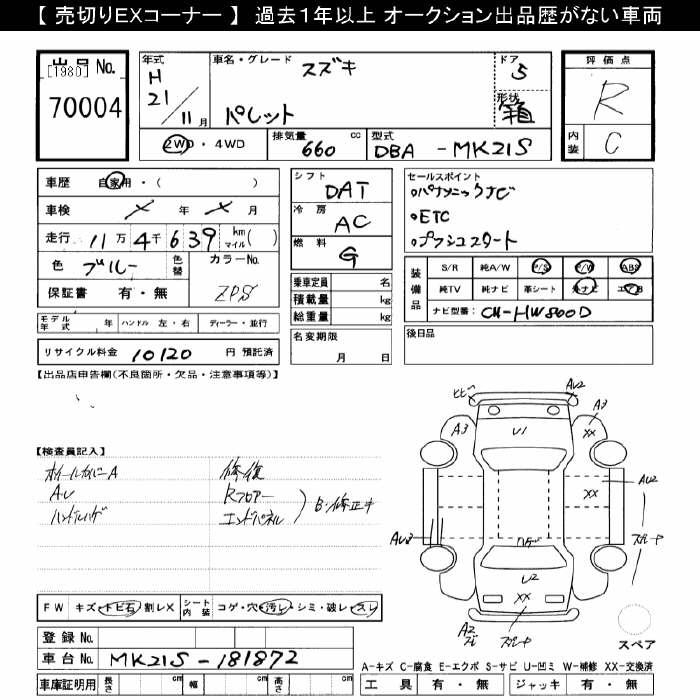 【 売切りEXコーナー 】 過去１年以上 オークション出品歴がない車両
出品 No. [1980]
70004
年式 H 21/11 月
車名・グレード スズキ
パレット
ドア 5
形状 箱
2WD・4WD
排気量 660 cc
型式 DBA - MK21S
評価点 R
内装 C
車歴 自家用・( )
車検 メ 年 メ 月
走行 11万 4千 639 km マイル( )
色 ブルー 色替 カラーNo. ZPS
保証書 有・無
モデル年式 年 ハンドル 左・右 ディーラー・並行
リサイクル料金 10120 円 預託済
シフト DAT
冷房 AC
燃料 G
乗車定員 名
積載量 kg
総重量 kg
名変期限 月 日
セールスポイント
•パナソニックナビ
•ETC
•プッシュスタート
装備品 S/R 純A/W P/S P/W ABS
純TV 純ナビ 革シート 外ナビ エアB
ナビ型番: CN-HW800D
後日品
【出品店申告欄(不良個所・欠品・注意事項等)】
【検査員記入】
ホイールカバーA
AU
ハンドルハゲ
修復
Rフロアー
エンドパネル
B・修正キ
ヒビ
AU2
A3
U1
A3
XX
AU2
XX
スプレーヤ
AU3
ハゲ
U2
XX
A2
スプレーヤ
スペア
FW キズ・トビ石・割レX シート内装 コゲ・穴・汚レ・シミ・破レ・スレ
登録 No.
車台 No. MK21S-181872
車庫証明用 長さ cm 幅 cm 高さ cm
A-キズ C-腐食 E-エクボ S-サビ U-凹ミ W-補修 XX-交換済
工具 有・無 ジャッキ 有・無